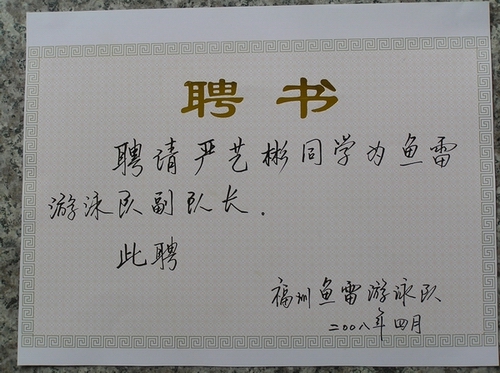 聘书
聘请严艺彬同学为鱼雷
游泳队副队长.
此聘
福州鱼雷游泳队
二00八年四月